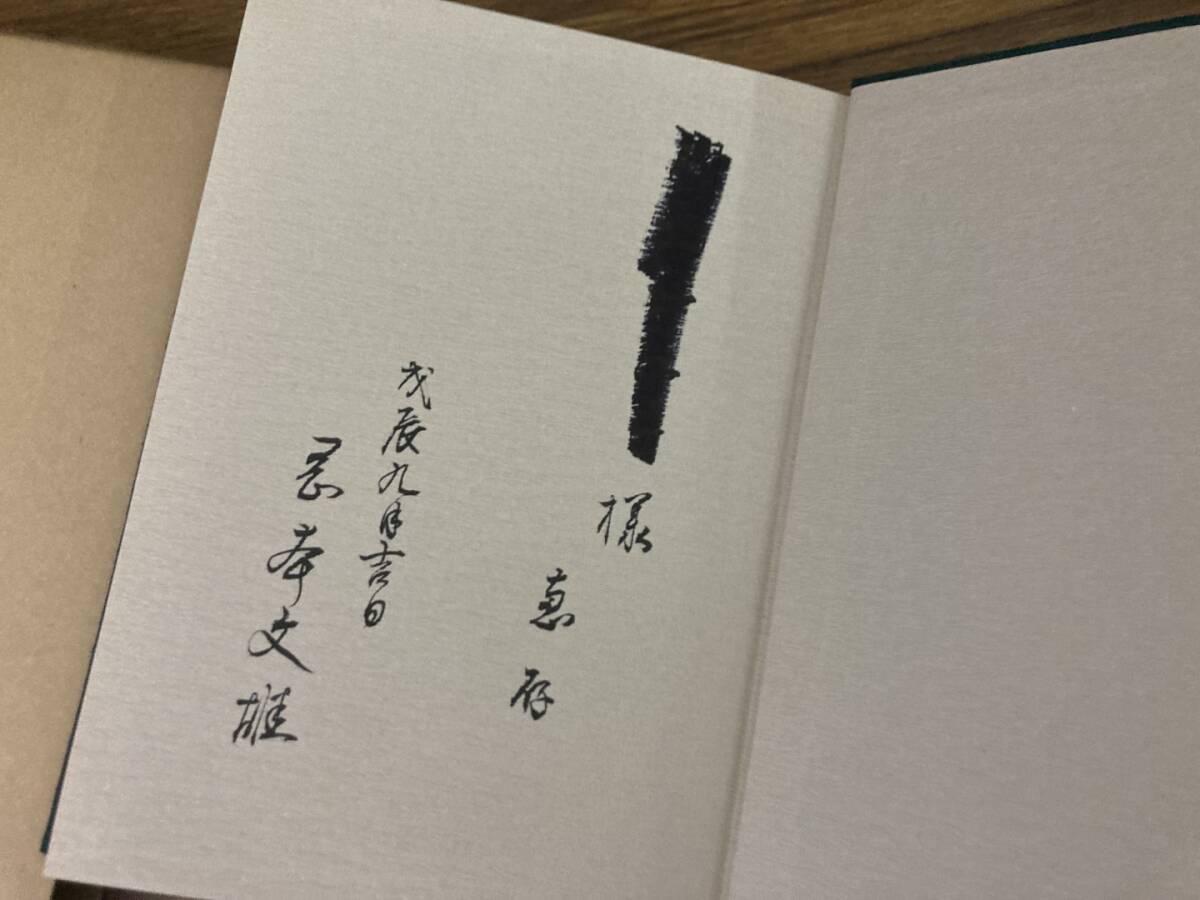 様
恵存
戊辰九月吉日
岡本文雄